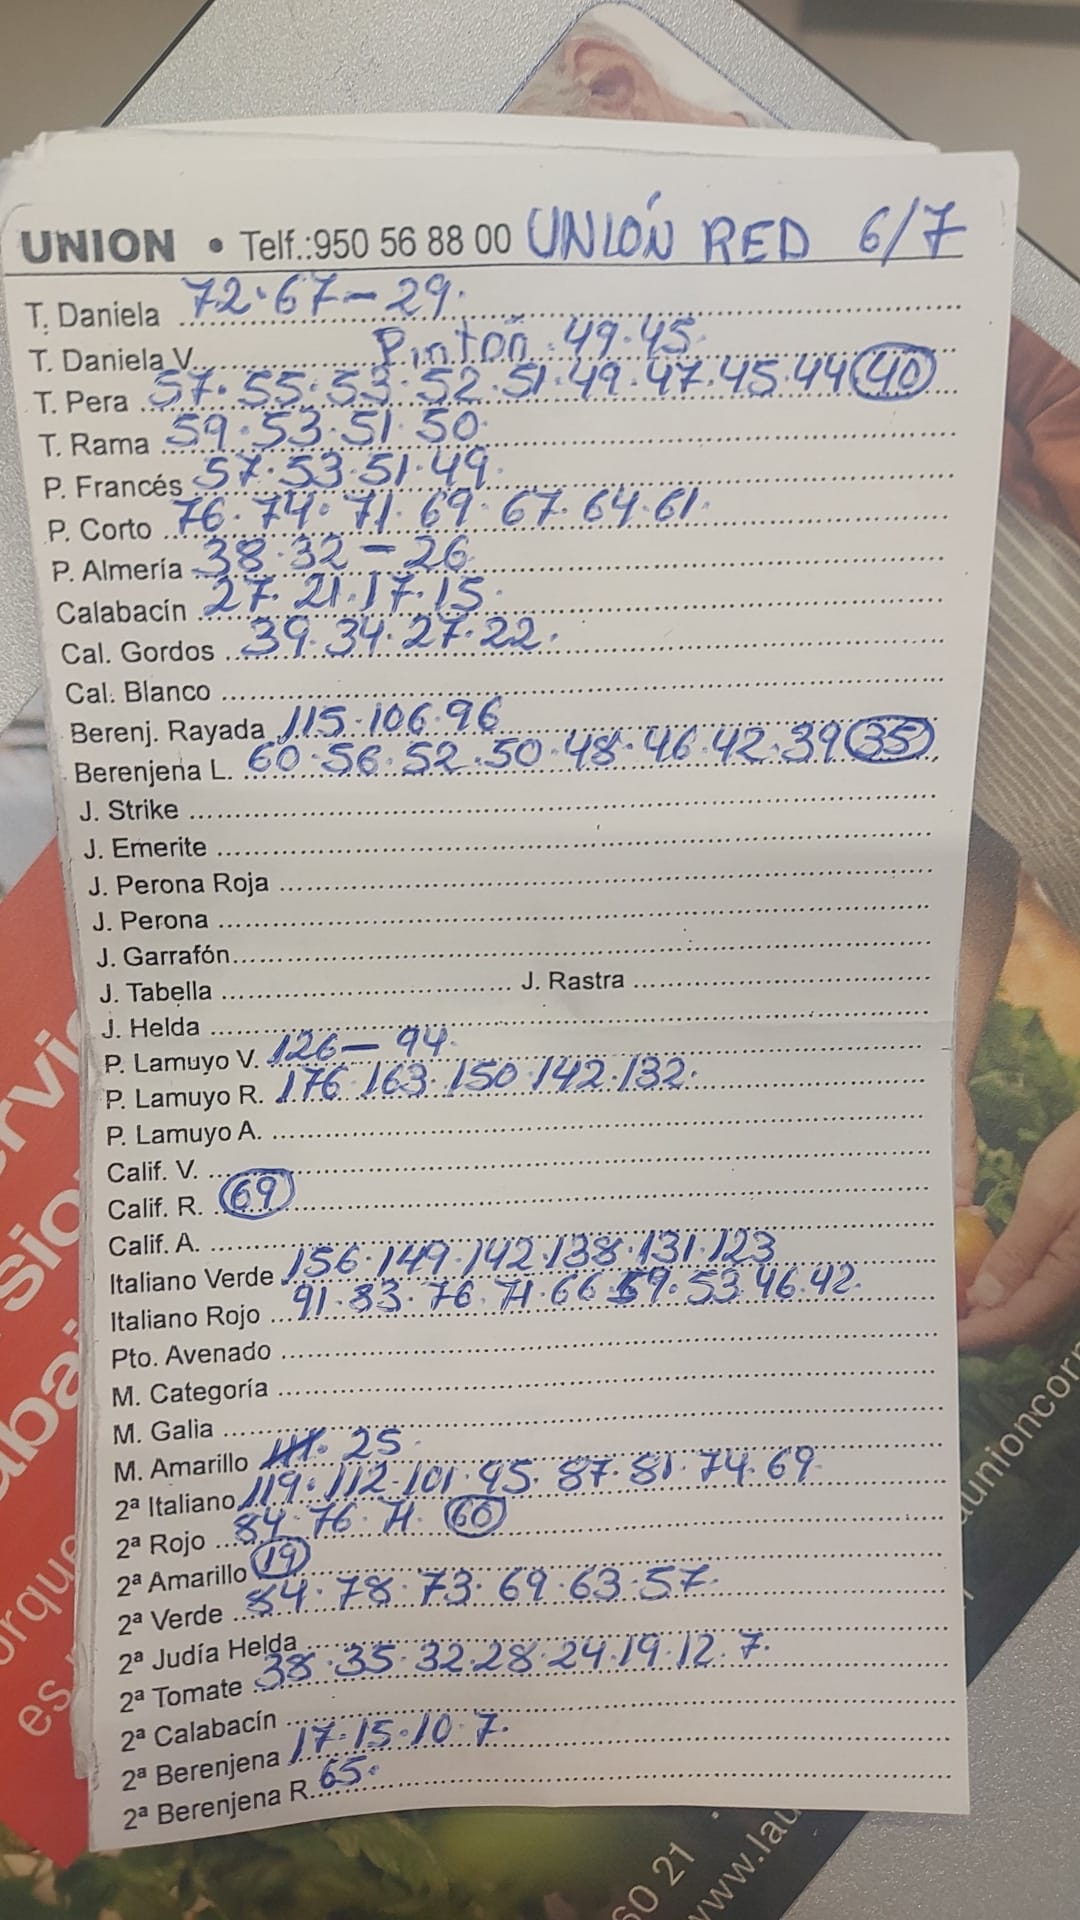 UNION • Telf.:950 56 88 00 UNIÓN RED 6/7
T. Daniela 72·67–29·
T. Daniela V. Pintón·49·45·
T. Pera 57·55·53·52·51·49·47·45·44 40
T. Rama 59·53·51·50·
P. Francés 57·53·51·49·
P. Corto 76·74·71·69·67·64·61·
P. Almería 38·32–26
Calabacín 27·21·17·15·
Cal. Gordos 39·34·27·22·
Cal. Blanco
Berenj. Rayada 115·106·96
Berenjena L. 60·56·52·50·48·46·42·39 35
J. Strike
J. Emerite
J. Perona Roja
J. Perona
J. Garrafón
J. Tabella J. Rastra
J. Helda
P. Lamuyo V. 126–94·
P. Lamuyo R. 176·163·150·142·132·
P. Lamuyo A.
Calif. V.
Calif. R. 69
Calif. A.
Italiano Verde 156·149·142·138·131·123
Italiano Rojo 91·83·76·71·66·59·53·46·42·
Pto. Avenado
M. Categoría
M. Galia
M. Amarillo 25·
2ª Italiano 119·112·101·95·87·81·74·69·
2ª Rojo 84·76·71· 60
2ª Amarillo 19
2ª Verde 84·78·73·69·63·57·
2ª Judía Helda
2ª Tomate 38·35·32·28·24·19·12·7·
2ª Calabacín
2ª Berenjena 17·15·10·7·
2ª Berenjena R. 65·
60 21